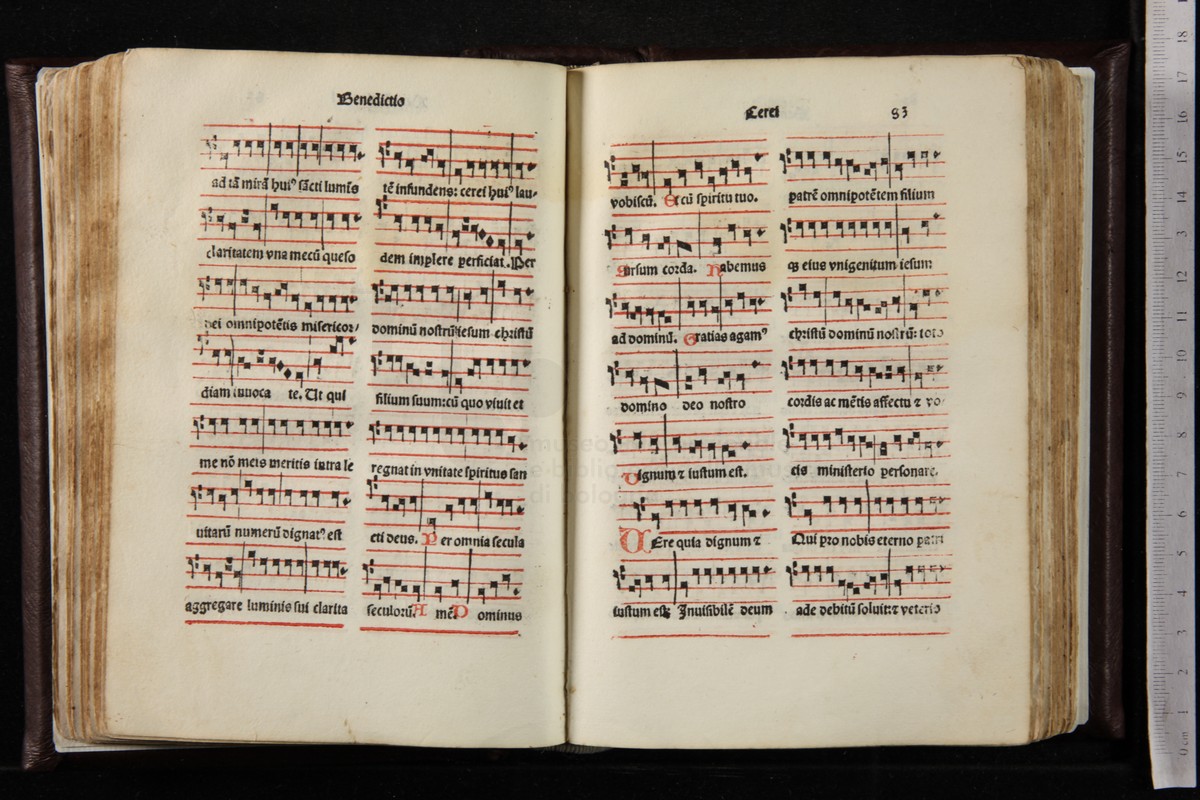 Benedictio
ad tā mirā huiꝰ sācti lumīs
claritatem vna mecū queso
dei omnipotētis misericor/
diam inuoca te. Ut qui
me nō meis meritis intra le
uitarū numerū dignatꝰ est
aggregare luminis sui clarita
tē infundens: cerei huiꝰ lau-
dem implere perficiat. Per
dominū nostrū iesum christū
filium suum: cū quo viuit et
regnat in vnitate spiritus san
cti deus. Per omnia secula
seculorū. A mē. Dominus
Cerei 83
vobiscū. Et cū spiritu tuo.
Sursum corda. Habemus
ad dominū. Gratias agamꝰ
domino deo nostro
Dignum ⁊ iustum est.
UEre quia dignum ⁊
iustum est; Inuisibilē deum
patrē omnipotētem filium
qꝫ eius vnigenitum iesum
christū dominū nostrū: toto
cordis ac mētis affectu ⁊ vo
cis ministerio personare.
Qui pro nobis eterno patri
ade debitū soluit: ⁊ veteris